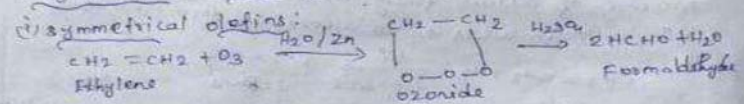 (i) symmetrical olefins:
CH2 = CH2 + O3 H2O/Zn CH2 — CH2 O—O—O H2SO4 2HCHO + H2O
Ethylene ozonide Formaldehyde